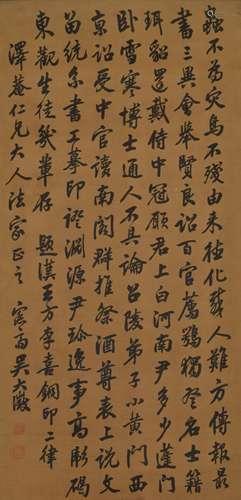 蟲不為災鳥不殘由来德化感人難方傳報最
書三異會舉賢良詔百官薦鶚獨登名士籍
珥貂還戴侍中冠願君上白河南尹多少蓬門
卧雪寒博士通人不具論召陵弟子小黃門西
京詔受中官讀南閣群推祭酒尊表上說文
留統系書王摹印證淵源尹珍逸事高彪碣
東觀生徒幾輩存 題漢王方李喜銅印二律
澤菴仁兄大人法家正之 愙齋吳大澂